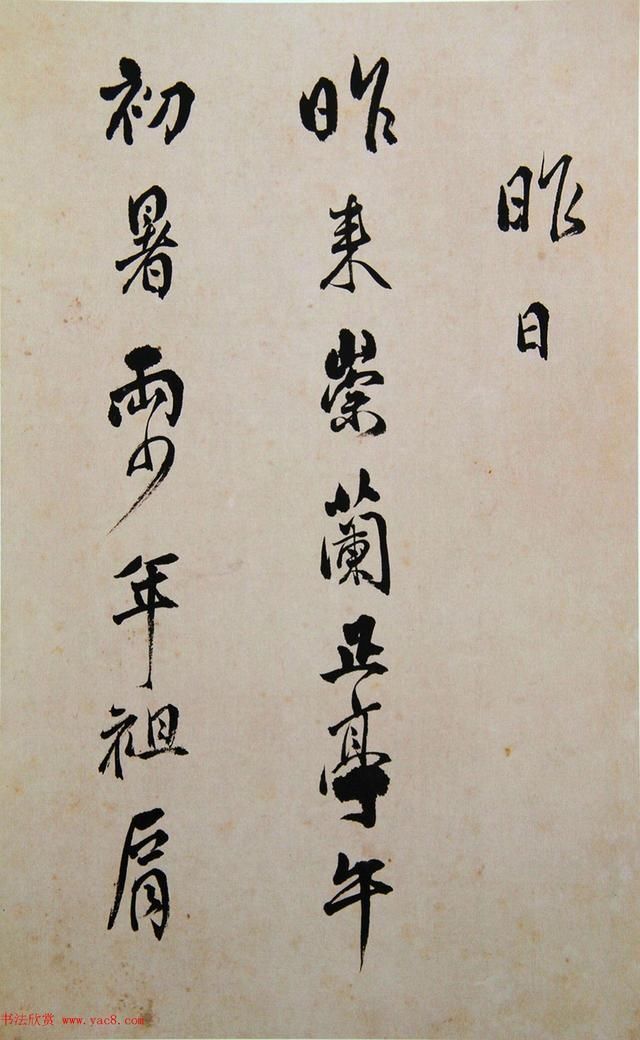 昨日
昨来崇蘭正亭午
初暑兩少年祖肩
书法欣赏 www.yac8.com